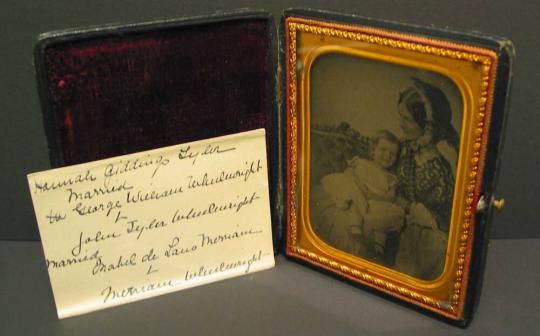 Hannah Giddings Tyler
Married
to George William Wheelwright
+
John Tyler Wheelwright
Married Mabel de Laus Merriam
+
Merriam Wheelwright